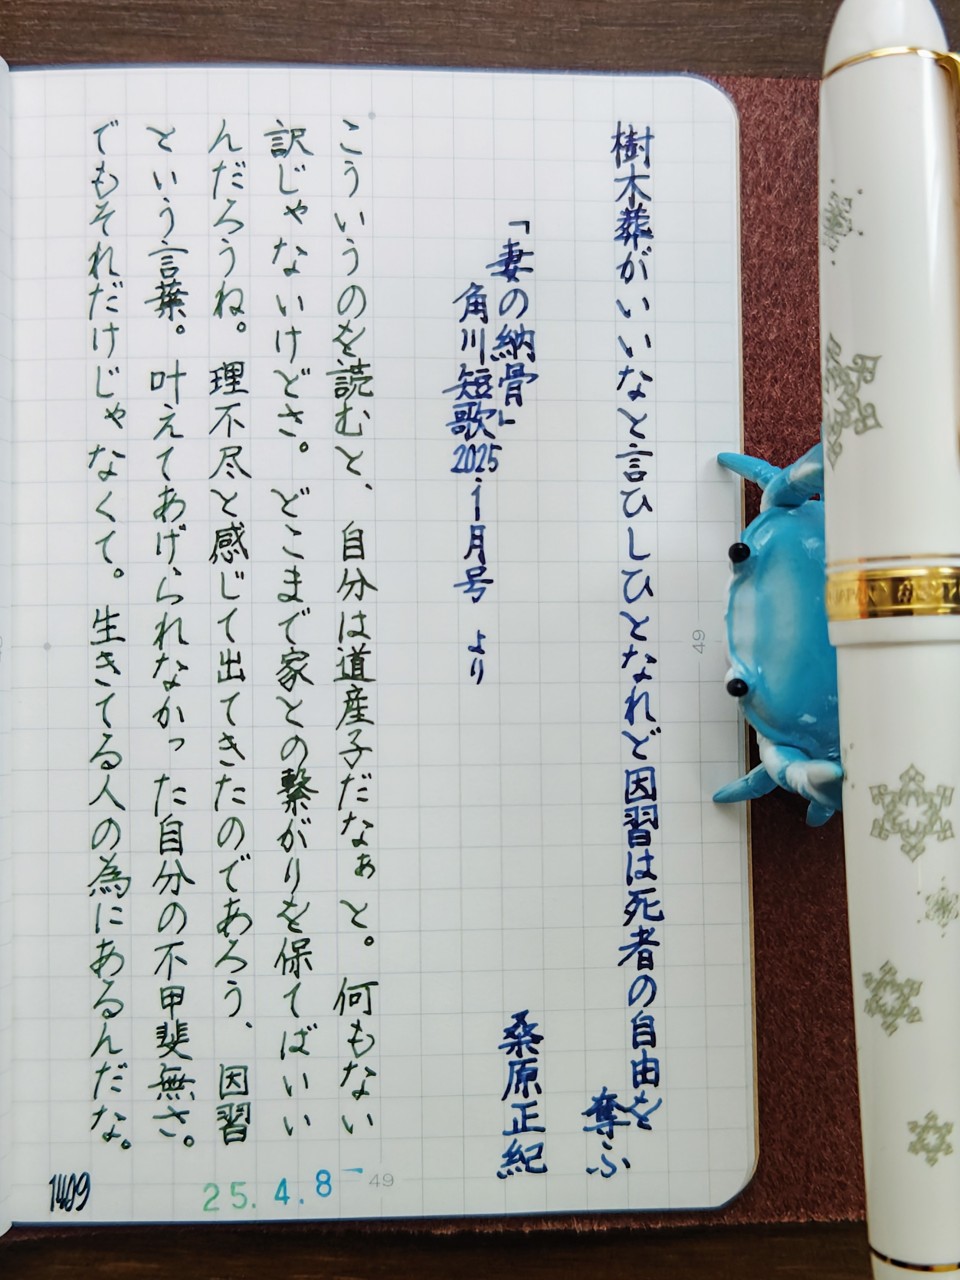 樹木葬がいいなと言ひしひとなれど因習は死者の自由を
奪ふ
「妻の納骨」
桑原正紀
角川短歌2025.1月号 より
こういうのを読むと、自分は道産子だなぁと。何もない
訳じゃないけどさ。どこまで家との繋がりを保てばいい
んだろうね。理不尽と感じて出てきたのであろう、因習
という言葉。叶えてあげられなかった自分の不甲斐無さ。
でもそれだけじゃなくて。生きてる人の為にあるんだな。
25.4.8
49
49
49